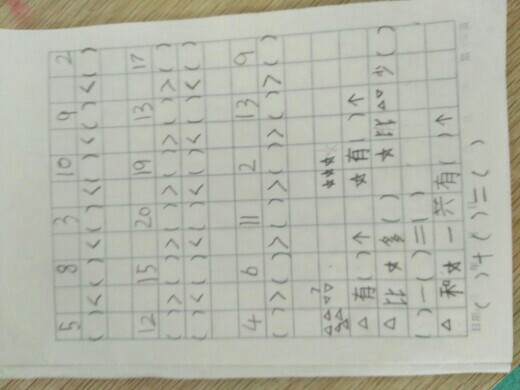 5 8 3 10 9 2
( )<( )<( )<( )<( )<( )
12 15 20 19 13 17
( )>( )>( )>( )>( )>( )
( )<( )<( )<( )<( )<( )
4 6 11 2 13 9
( )>( )>( )>( )>( )>( )
△有( )个 ☆有( )个
△比☆多( ) ☆比△少( )
( )-( )=( )
△和☆一共有( )个
( )+( )=( )